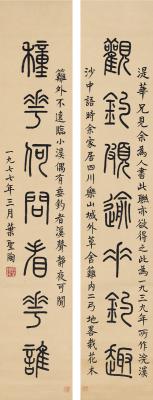 湜華兄見余為人書此聯亦欲得之一九三九年所作浣溪
觀釣頗逾垂釣趣
沙中語時余家居四川樂山城外草舍籬內二弓地畧栽花木
籬外不遠臨小溪偶有垂釣者溪聲靜夜可聞
種花何問看花誰
一九七七年三月葉聖陶